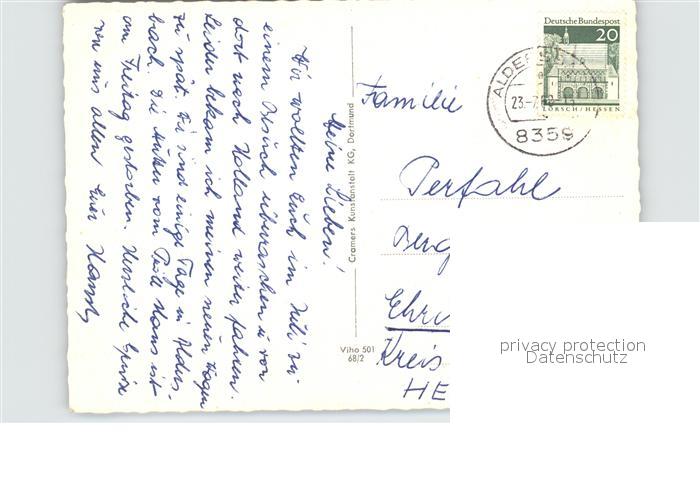 Meine Lieben!
Wir wollten Euch im Juli zu
einem Besuch überraschen u. von
dort nach Holland weiter fahren.
Leider bekam ich meinen neuen Wagen
zu spät. Wir sind einige Tage in Alders-
bach. Die Mutter vom Hans ist
am Freitag gestorben. Herzliche Grüsse
von uns allen Euer
Cramers Kunstanstalt KG, Dortmund
Viho 501
68/2
Deutsche Bundespost
20
LORSCH/HESSEN
ALDER
23.-7.
8359
Familie
Perfahl
Ehr
Kreis
HE
privacy protection
Datenschutz